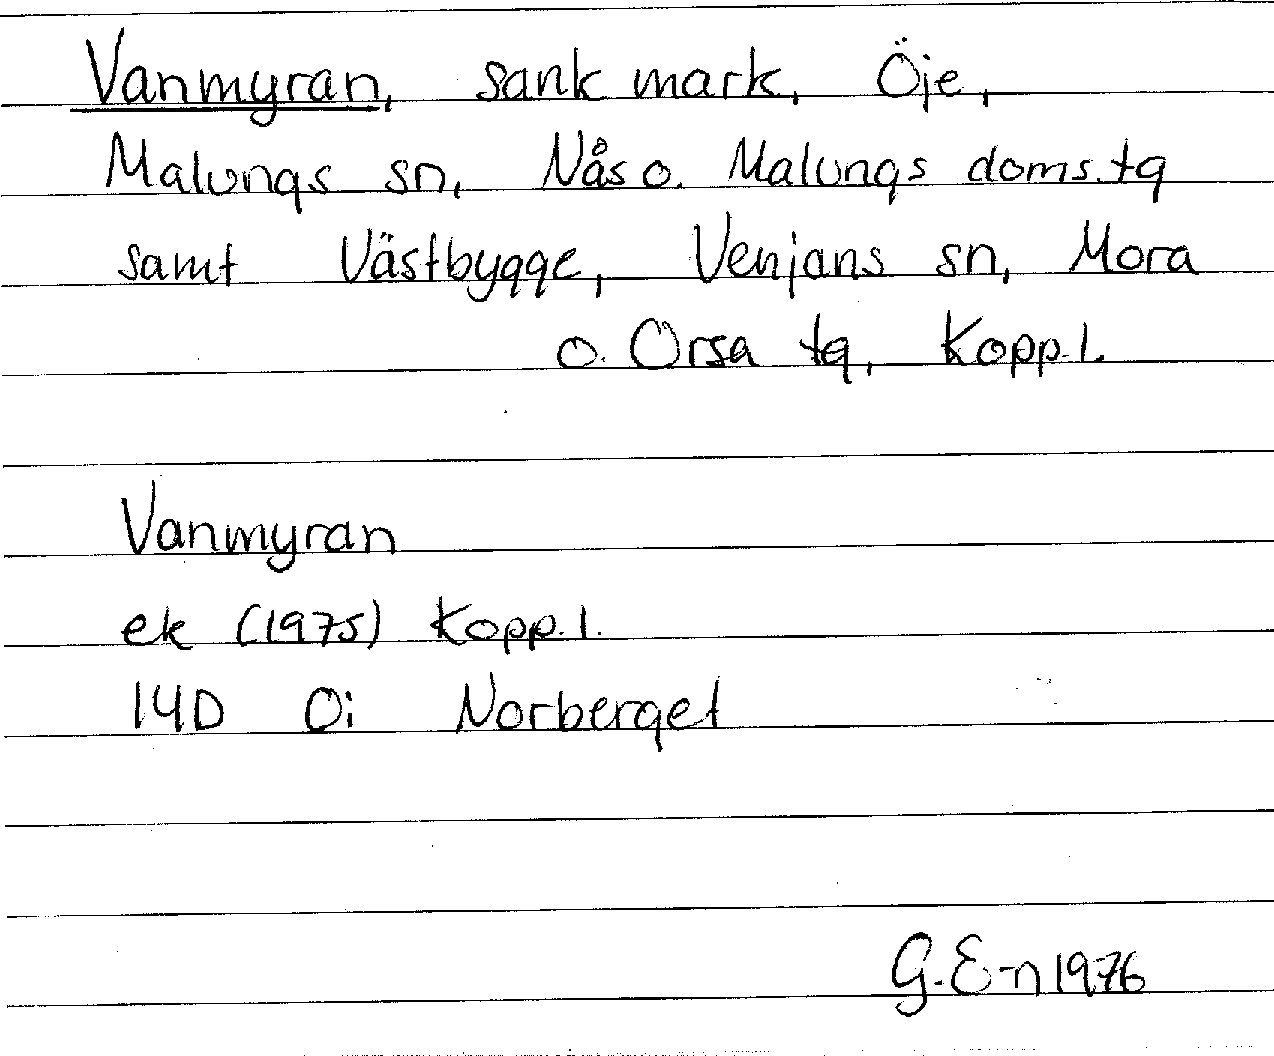 Vanmyran, sank mark, Öje,
Malungs sn, Nås o. Malungs doms.tg
samt Västbygge, Venjans sn, Mora
o. Orsa tg, Kopp.l.
Vanmyran
ek (1975) Kopp.l.
14D 0i Norberget
G.E-n 1976